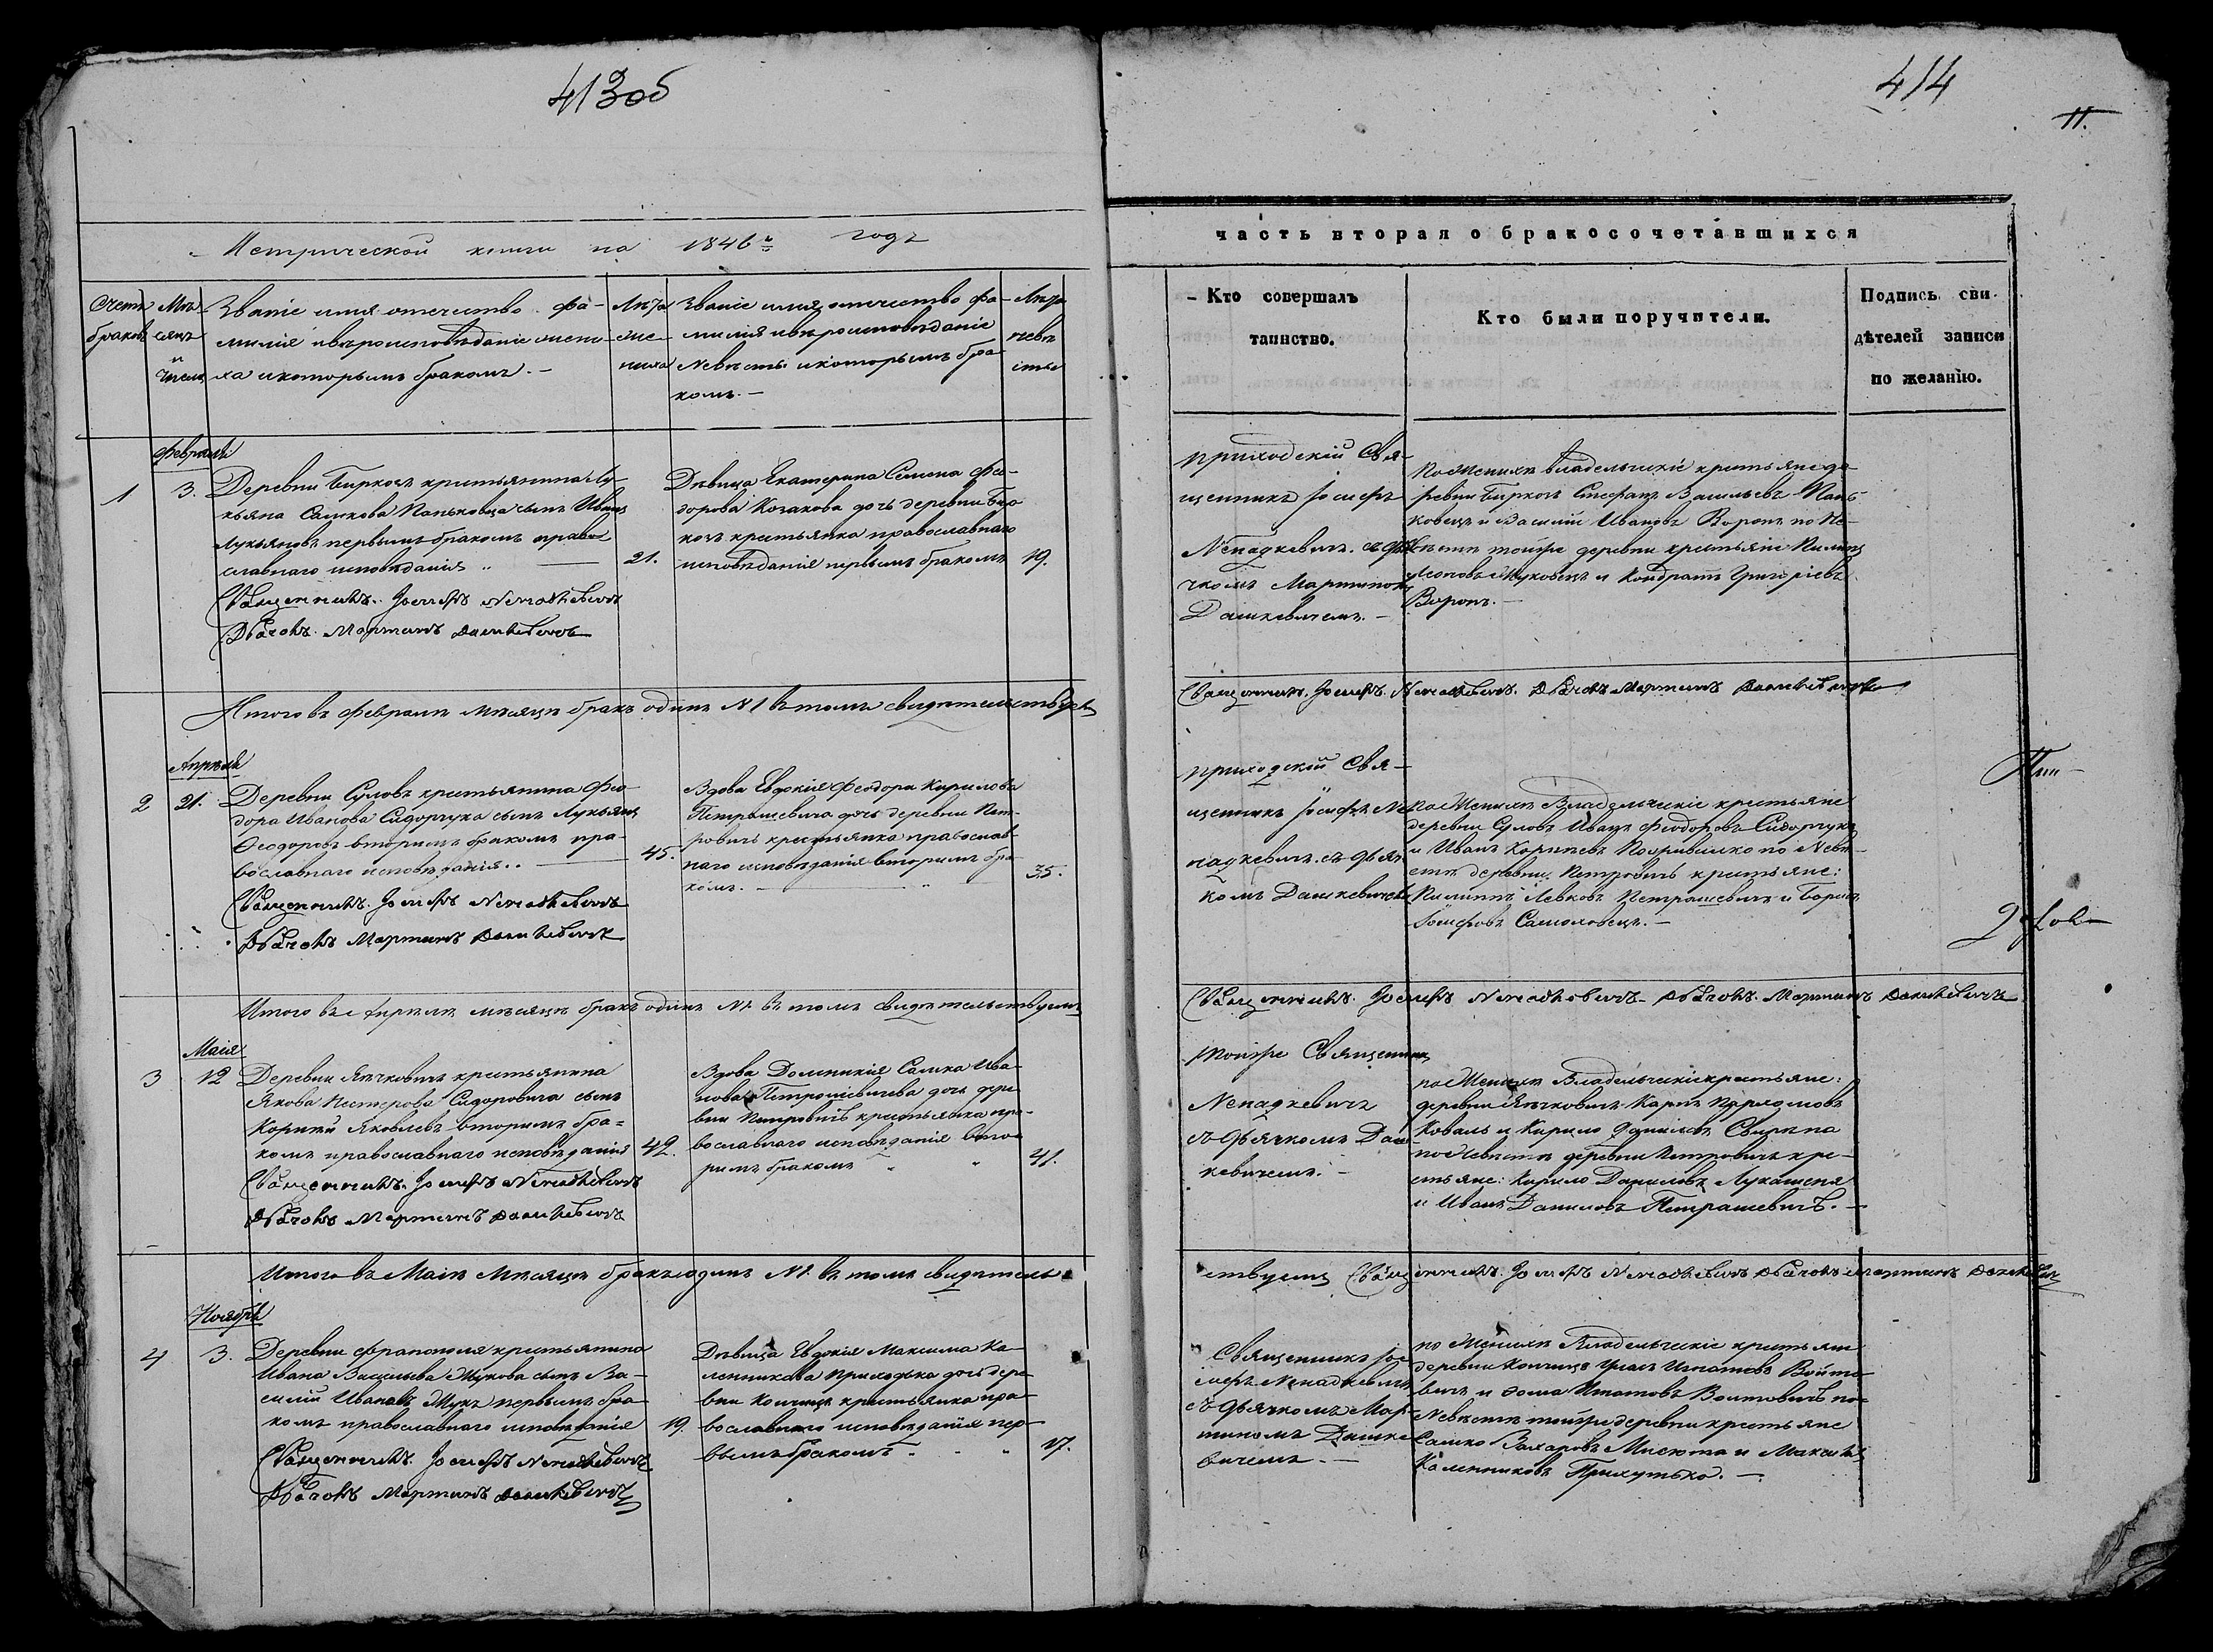 413 об
414
11.
Метрической книги на 1846й годъ
часть вторая о бракосочетавшихся
Счетъ браковъ
Мѣсяцъ и число
Званіе имя отечество фа-
милія и вѣроисповѣданіе жени-
ха и которымъ бракомъ. —
Лѣта жениха
Званіе имя отечество фа-
милія и вѣроисповѣданіе
Невѣсты и которымъ бра-
комъ. —
Лѣта невѣсты
Кто совершалъ
таинство.
Кто были поручители.
Подпись сви-
дѣтелей записи
по желанію.
Февраль
1
3.
Деревни Биркозъ крестьянина Лу-
кьяна Самкова Паньковца сынъ Иванъ
Лукьяновъ первымъ бракомъ право-
славнаго исповѣданія
Священникъ Іосифъ Ненадкевичъ
Дьячокъ Мартинъ Дашкевичъ
21.
Дѣвица Екатерина Семена Фео-
дорова Козакова дочь деревни Бир-
козъ крестьянка православнаго
исповѣданія первымъ бракомъ
19.
приходскій Свя-
щенникъ Іосифъ
Ненадкевичъ съ дья-
чкомъ Мартиномъ
Дашкевичемъ. —
По Женихѣ владельческіе крестьяне де-
ревни Биркозъ Стефанъ Васильевъ Пань-
ковецъ и Василій Ивановъ Воронъ по Не-
вѣстѣ тойже деревни крестьяне Пилипъ
и Кондратъ Григоріевъ
Воронъ. —
Итого въ Февралѣ мѣсяцѣ бракъ одинъ №1 въ томъ свидѣтельствуемъ
Священникъ Іосифъ Ненадкевичъ. Дьячокъ Мартинъ Дашкевичъ
Апрѣль
2
21.
Деревни Суловъ крестьянина Фео-
дора Иванова Сидорчука сынъ Лукьянъ
Феодоровъ вторимъ бракомъ пра-
вославнаго исповѣданія..
Священникъ Іосифъ Ненадкевичъ
Дьячокъ Мартинъ Дашкевичъ
45.
Вдова Евдокія Феодора Кирилова
Петрашевича дочь деревни Пет-
ровичъ крестьянка православ-
наго исповѣданія вторимъ бра-
комъ. —
35.
приходскій Свя-
щенникъ Іосифъ Не-
надкевичъ съ дьяч-
комъ Дашкевичемъ
по Женихѣ Владельческіе крестьяне
деревни Суловъ Иванъ Феодоровъ Сидорчукъ
и Иванъ Корнѣевъ по Невѣ-
стѣ деревни Петровичъ крестьяне:
Пилипъ Левковъ Петрашевичъ и Борисъ
Іосифовъ Самоловецъ. —
Итого въ Апрѣлѣ мѣсяцѣ бракъ одинъ №1. въ томъ свидѣтельствуемъ
Священникъ Іосифъ Ненадкевичъ Дьячокъ Мартинъ Дашкевичъ
Маія
3
12
Деревни крестьянина
Якова Нестерова Сидоровича сынъ
Корнѣй Яковлевъ вторимъ бра-
комъ православнаго исповѣданія
Священникъ Іосифъ Ненадкевичъ
Дьячокъ Мартинъ Дашкевичъ
42.
Вдова Домникія Самка Ива-
нова Петрашевичева дочь дере-
вни Петровичъ крестьянка пра-
вославнаго исповѣданія вто-
римъ бракомъ
41.
тойже Священникъ
Ненадкевичъ
съ дьячкомъ Даш-
кевичемъ. —
по Женихѣ Владельческіе крестьяне:
деревни Карпъ Пархомовъ
Коваль и Кирило Даниловъ Свирепа
по Невѣстѣ деревни Петровичъ кре-
стьяне: Кирило Даниловъ Лукашеня
и Иванъ Даниловъ Петрашевичъ. —
Итого въ Маіѣ мѣсяцѣ бракъ одинъ №1. въ томъ свидѣтель-
ствуемъ Священникъ Іосифъ Ненадкевичъ Дьячокъ Мартинъ Дашкевичъ
Ноябрь
4
3.
Деревни Франополя крестьянина
Ивана Васильева Жукова сынъ Ва-
силій Ивановъ Жукъ первымъ бра-
комъ православнаго исповѣданія
Священникъ Іосифъ Ненадкевичъ
Дьячокъ Мартинъ Дашкевичъ
19.
Дѣвица Евдокія Максима Ка-
ленникова Приходька дочь дере-
вни Кончицъ крестьянка пра-
вославнаго исповѣданія пер-
вымъ бракомъ
17.
Священникъ Іо-
сифъ Ненадкевичъ
съ дьячкомъ Мар-
тиномъ Дашке-
вичемъ. —
по Женихѣ Владельческіе крестьяне
деревни Кончицъ Игнатовъ Войто-
вичъ и Фома Игнатовъ Войтовичъ по
Невѣстѣ тойже деревни крестьяне
Самко Захаровъ Мисюта и Максимъ
Каленниковъ Прихутько. —